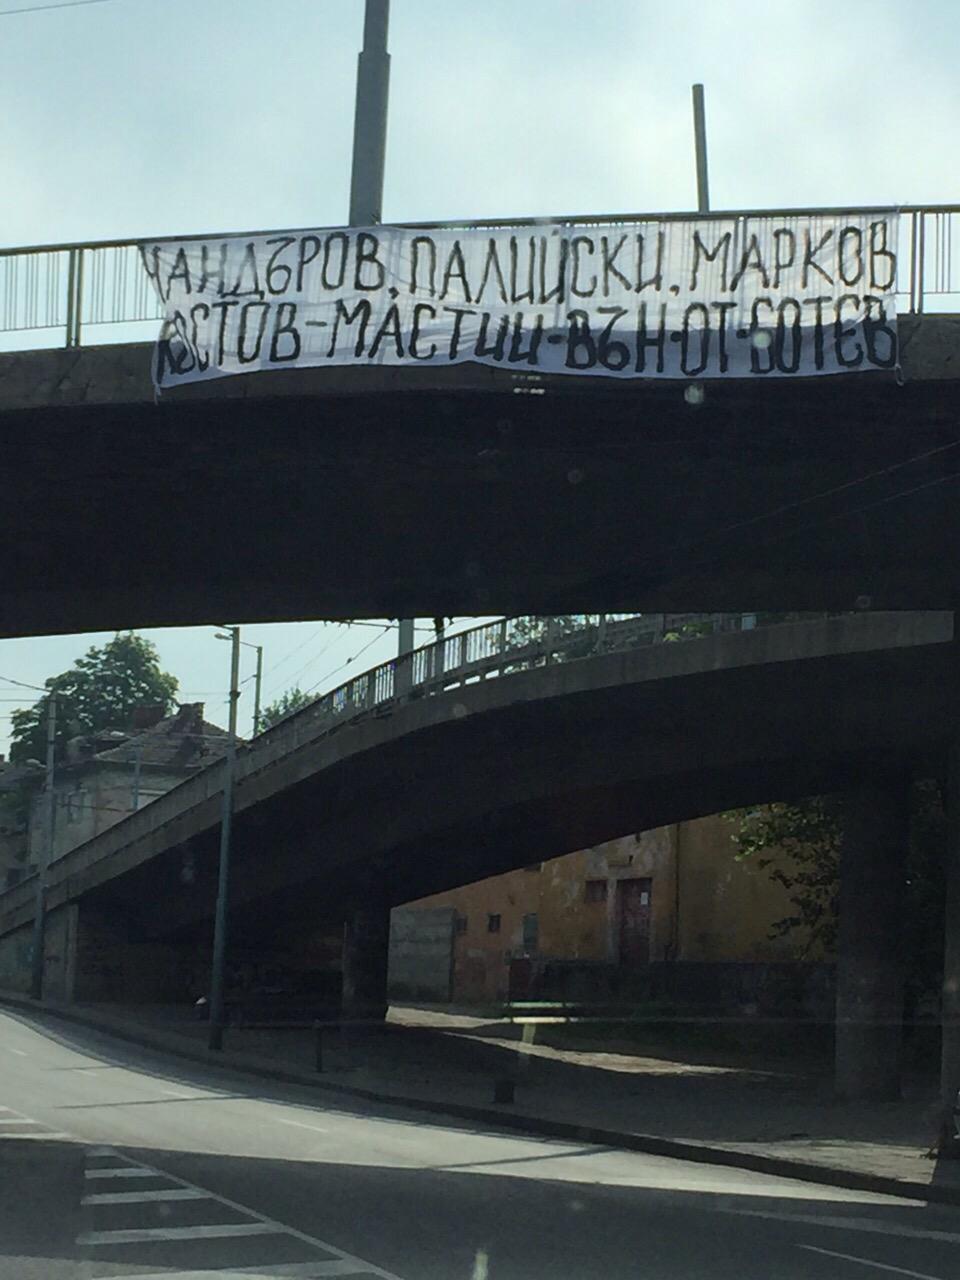 ЧАНДЪРОВ, ПАЛИЙСКИ, МАРКОВ
КОСТОВ-МАСТИИ-ВЪН-ОТ-БОТЕВ